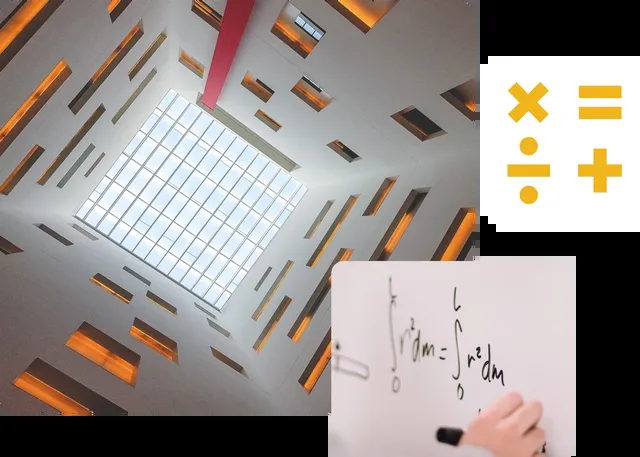 × =
÷ +
∫₀ᴸ r²dm = ∫₀ᴸ r²dm